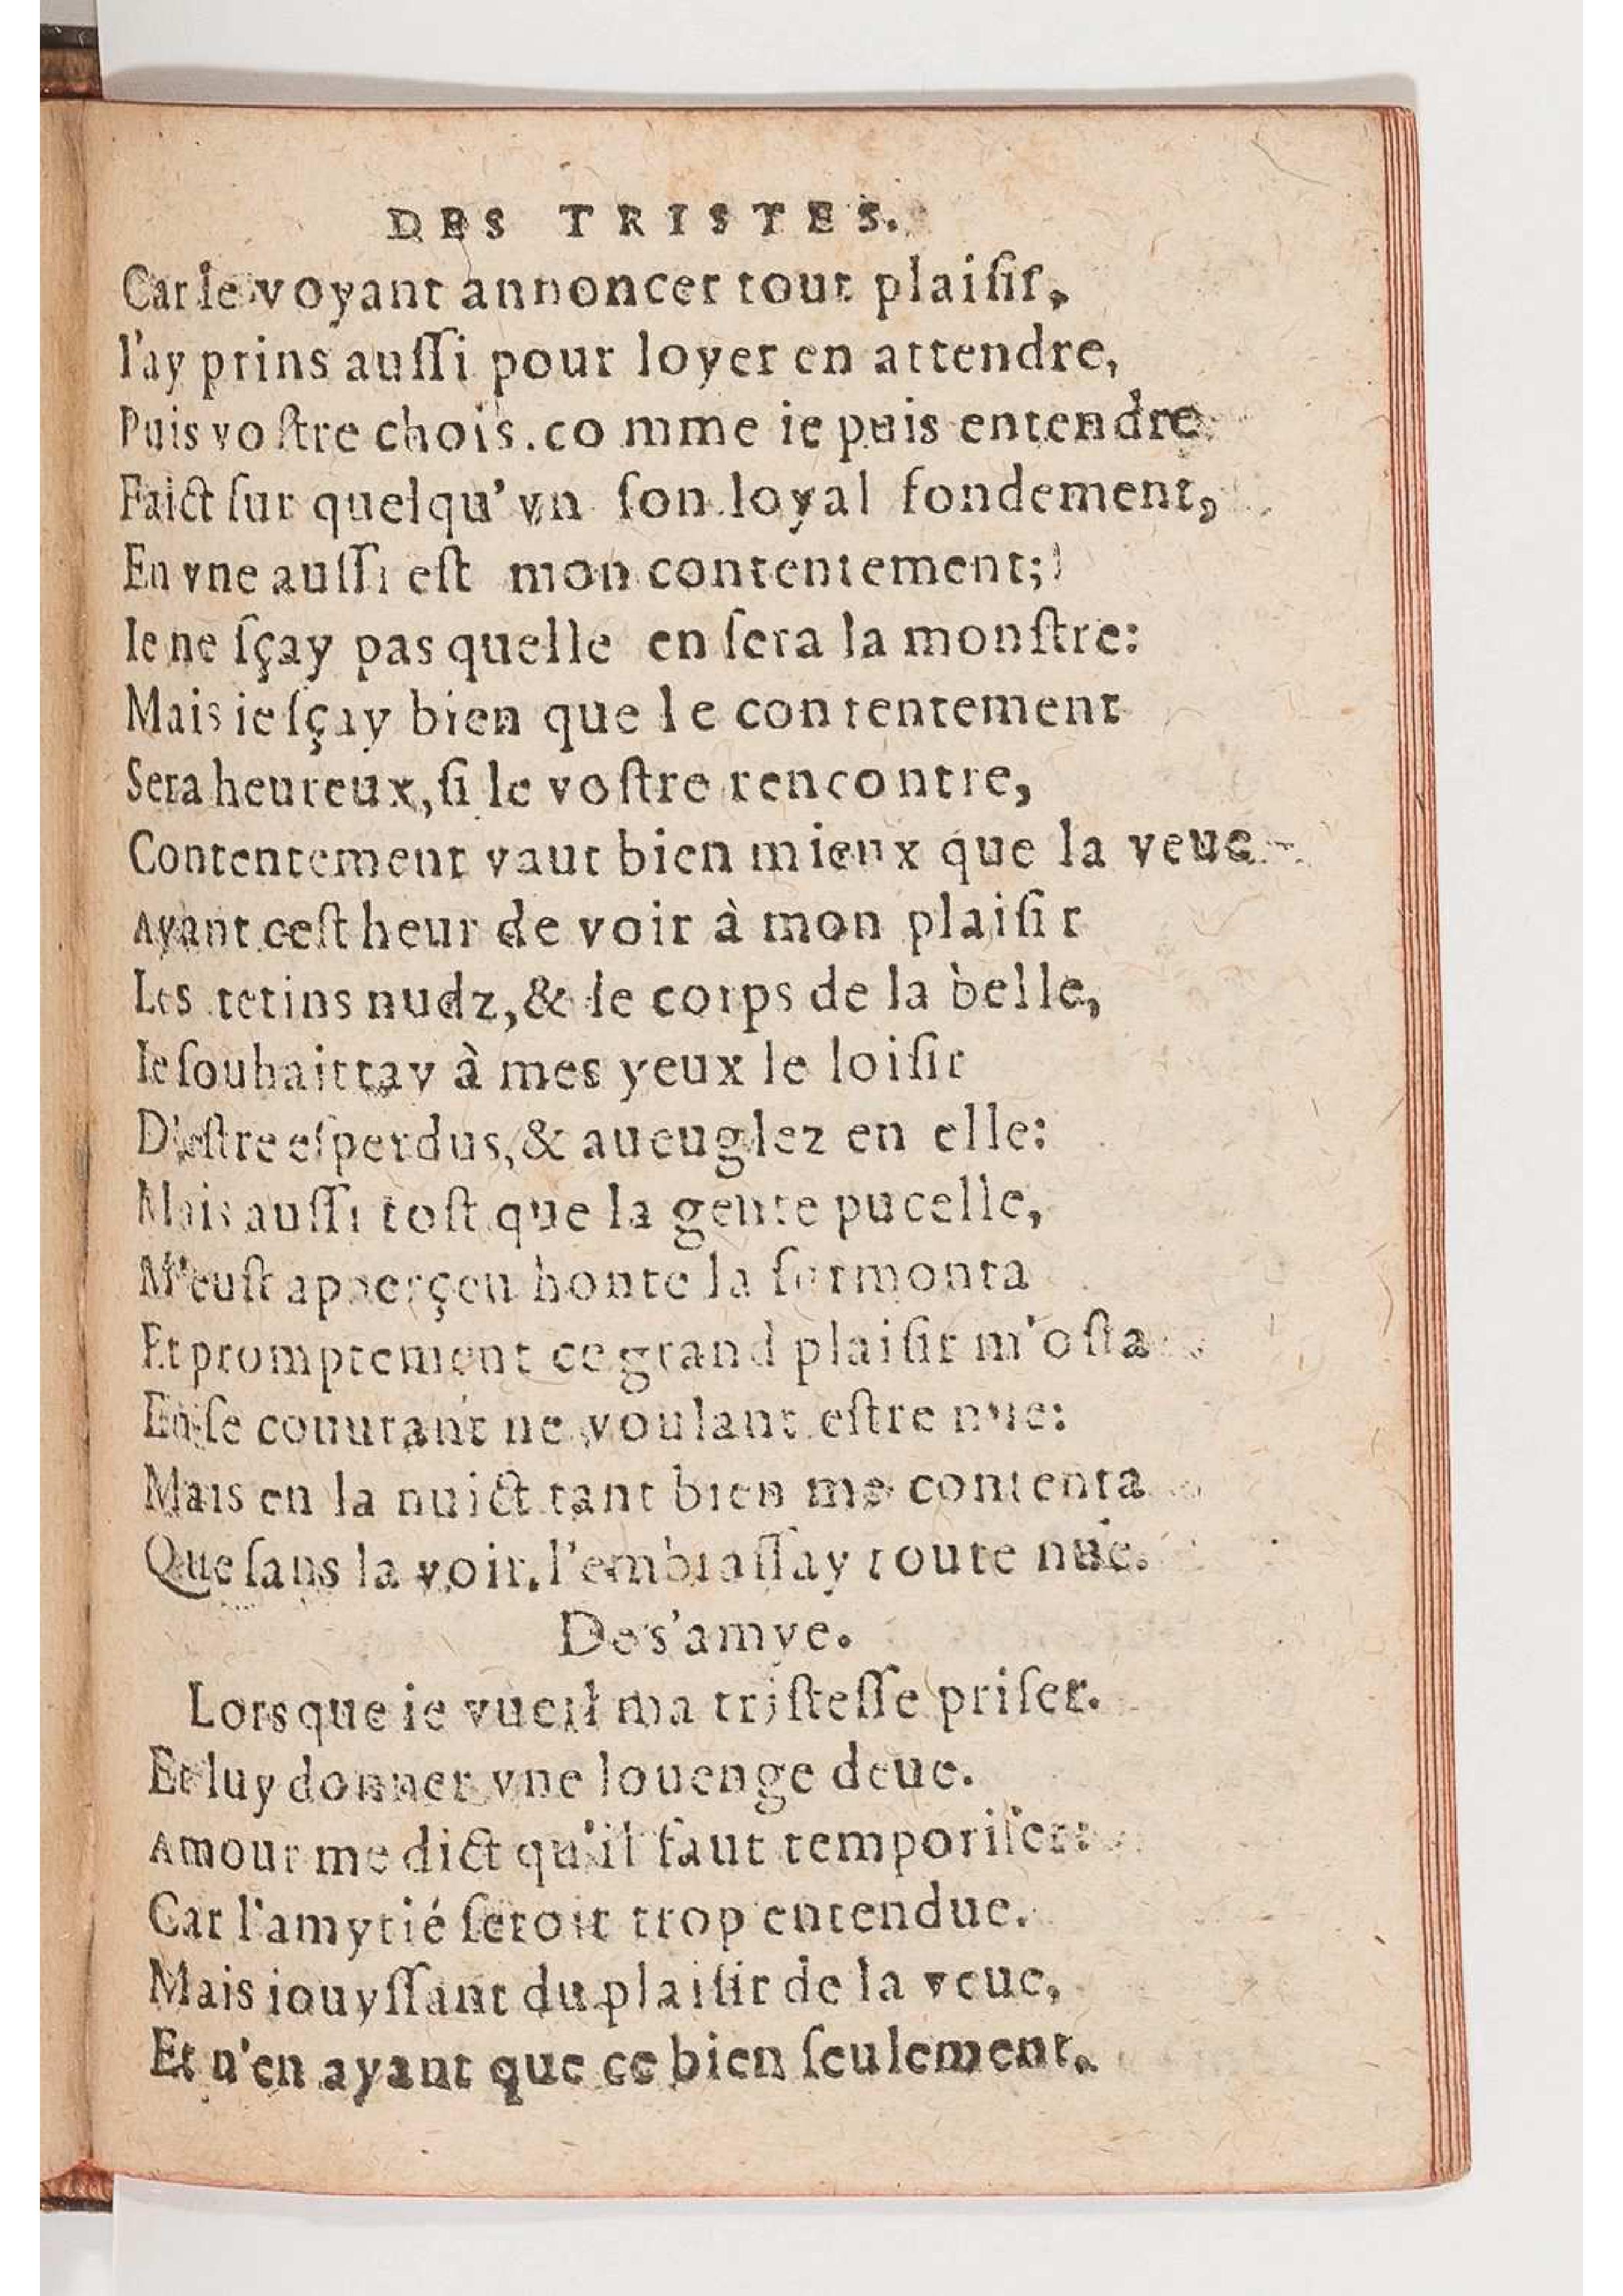 DES TRISTES.
Car le voyant annoncer tout plaiſir,
I'ay prins auſſi pour loyer en attendre,
Puis voſtre chois.comme ie puis entendre
Faict ſur quelqu'vn ſon loyal fondement,
En vne auſſi eſt mon contentement;
Ie ne ſçay pas quelle en ſera la monſtre:
Mais ie ſçay bien que le contentement
Sera heureux, ſi le voſtre rencontre,
Contentement vaut bien mieux que la veue
Ayant ceſt heur de voir à mon plaiſir
Les tetins nudz, & le corps de la belle,
Ie ſouhaittay à mes yeux le loiſir
D'eſtre eſperdus, & aueuglez en elle:
Mais auſſi toſt que la gente pucelle,
M'euſt apperçeu honte la ſurmonta
Et promptement ce grand plaiſir m'oſta
En ſe couurant ne voulant eſtre nue:
Mais en la nuict tant bien me contenta
Que ſans la voir, l'embraſſay toute nue.
De s'amye.
Lors que ie vueil ma triſteſſe priſer.
Et luy donner vne louenge deue.
Amour me dict qu'il faut temporiſer:
Car l'amytié ſeroit trop entendue.
Mais iouyſſant du plaiſir de la veue,
Et n'en ayant que ce bien ſeulement.